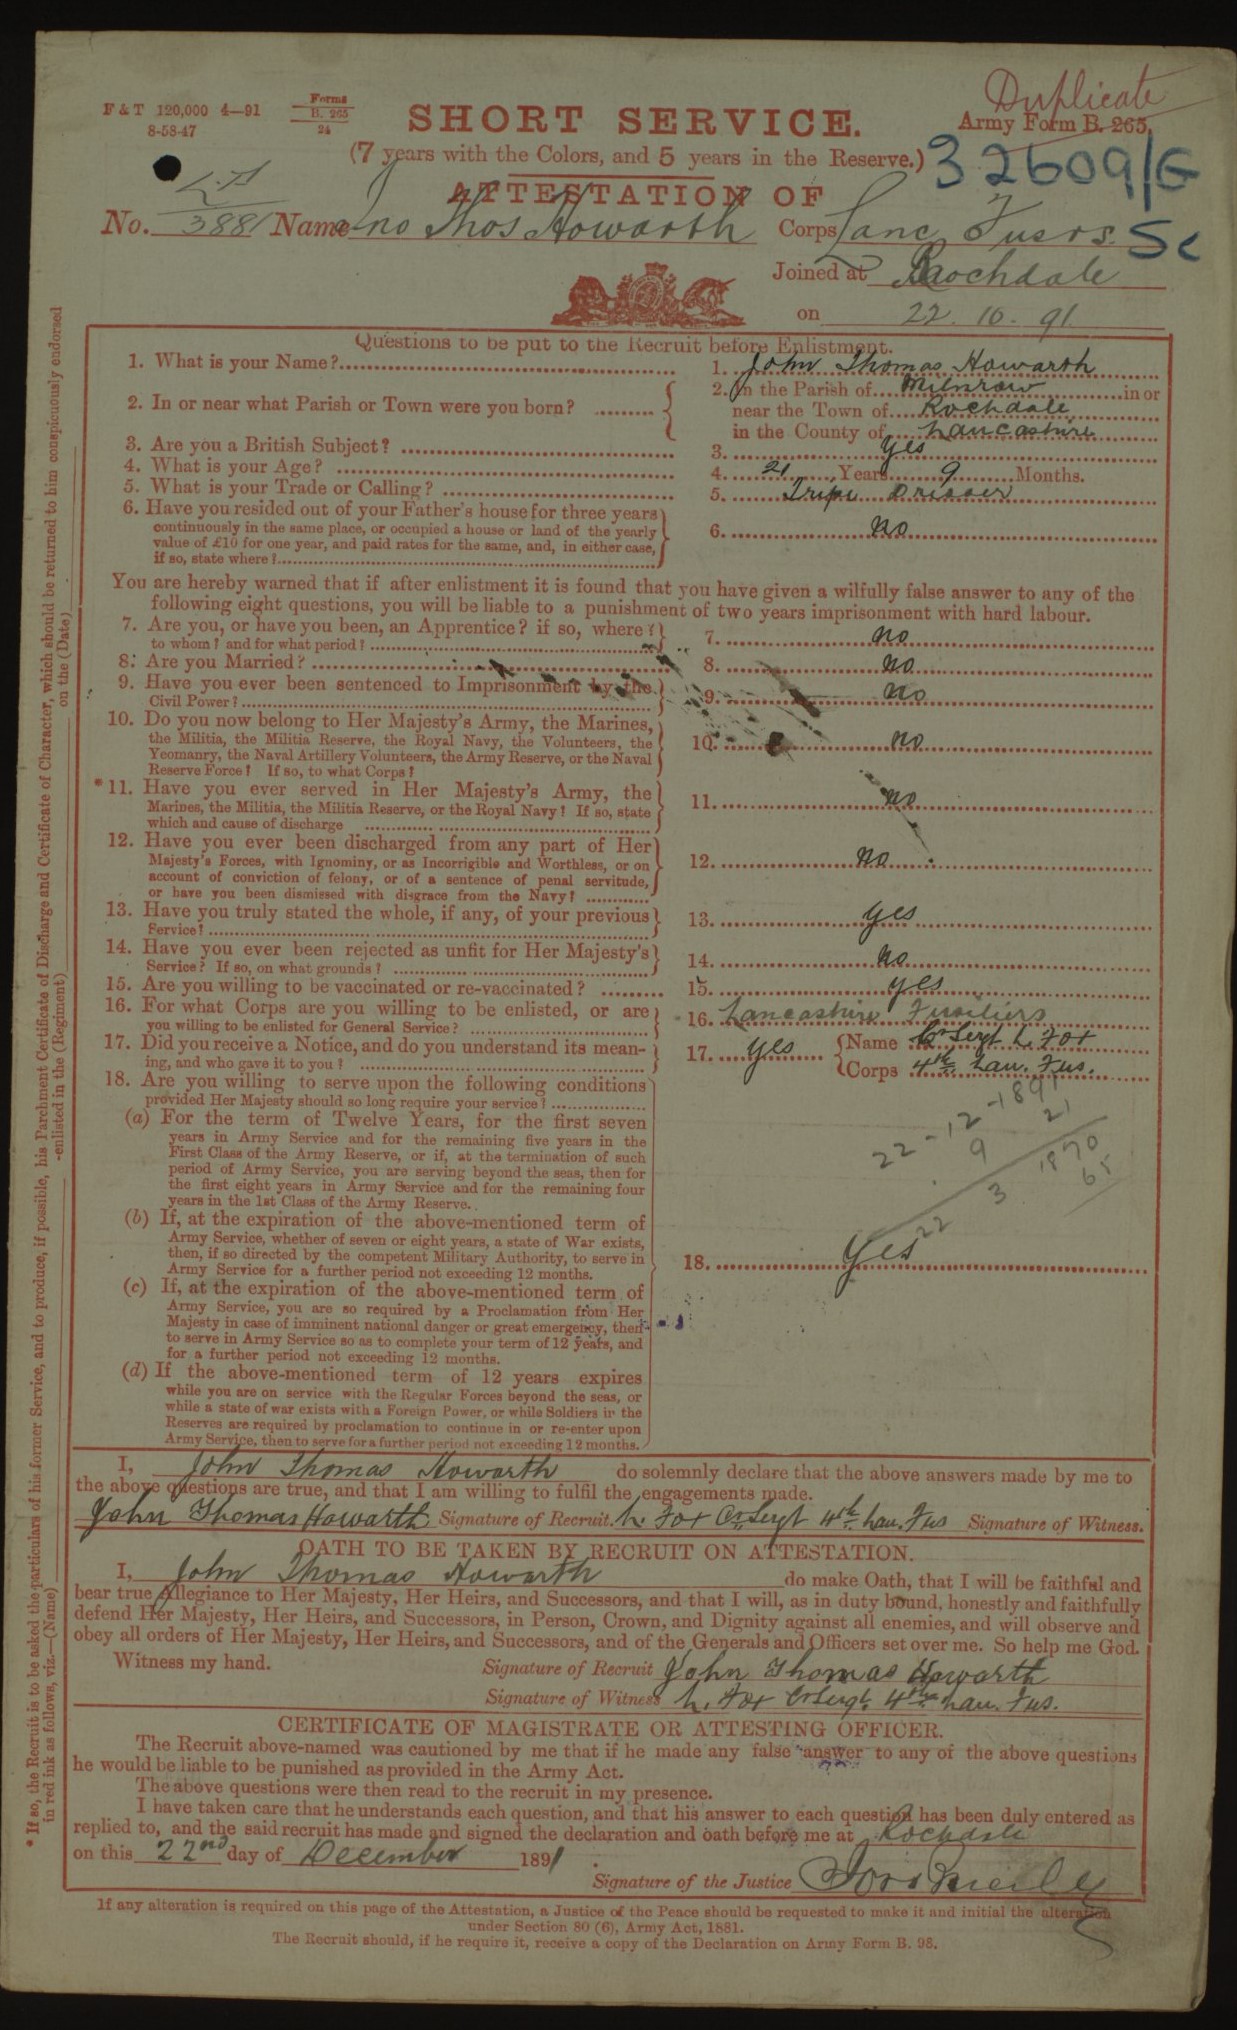 F & T 120,000 4—91
8-58-47
Forms
B. 265
24
SHORT SERVICE.
Duplicate
Army Form B. 265.
(7 years with the Colors, and 5 years in the Reserve.)
32609/G
ATTESTATION OF
No. 3881 Name Jno Thos Howarth Corps Lanc. Fusrs. Sc
Joined at Rochdale
on 22. 10. 91
Questions to be put to the Recruit before Enlistment.
1. What is your Name? 1. John Thomas Howarth
2. In or near what Parish or Town were you born? 2. In the Parish of Milnrow in or
near the Town of Rochdale
in the County of Lancashire
3. Are you a British Subject? 3. Yes
4. What is your Age? 4. 21 Years 9 Months.
5. What is your Trade or Calling? 5. Tripe Dresser
6. Have you resided out of your Father's house for three years
continuously in the same place, or occupied a house or land of the yearly
value of £10 for one year, and paid rates for the same, and, in either case,
if so, state where? 6. No
You are hereby warned that if after enlistment it is found that you have given a wilfully false answer to any of the
following eight questions, you will be liable to a punishment of two years imprisonment with hard labour.
7. Are you, or have you been, an Apprentice? if so, where?
to whom? and for what period? 7. No
8. Are you Married? 8. No
9. Have you ever been sentenced to Imprisonment by the
Civil Power? 9. No
10. Do you now belong to Her Majesty's Army, the Marines,
the Militia, the Militia Reserve, the Royal Navy, the Volunteers, the
Yeomanry, the Naval Artillery Volunteers, the Army Reserve, or the Naval
Reserve Force? If so, to what Corps? 10. No
*11. Have you ever served in Her Majesty's Army, the
Marines, the Militia, the Militia Reserve, or the Royal Navy? If so, state
which and cause of discharge 11. No
12. Have you ever been discharged from any part of Her
Majesty's Forces, with Ignominy, or as Incorrigible and Worthless, or on
account of conviction of felony, or of a sentence of penal servitude,
or have you been dismissed with disgrace from the Navy? 12. No
13. Have you truly stated the whole, if any, of your previous
Service? 13. Yes
14. Have you ever been rejected as unfit for Her Majesty's
Service? If so, on what grounds? 14. No
15. Are you willing to be vaccinated or re-vaccinated? 15. Yes
16. For what Corps are you willing to be enlisted, or are
you willing to be enlisted for General Service? 16. Lancashire Fusiliers
17. Did you receive a Notice, and do you understand its mean-
ing, and who gave it to you? 17. Yes Name Cr Sergt L. Fox
Corps 4th Lan. Fus.
18. Are you willing to serve upon the following conditions
provided Her Majesty should so long require your service?
(a) For the term of Twelve Years, for the first seven
years in Army Service and for the remaining five years in the
First Class of the Army Reserve, or if, at the termination of such
period of Army Service, you are serving beyond the seas, then for
the first eight years in Army Service and for the remaining four
years in the 1st Class of the Army Reserve.
22-12-1891
9 21
22 3 1870
65
(b) If, at the expiration of the above-mentioned term of
Army Service, whether of seven or eight years, a state of War exists,
then, if so directed by the competent Military Authority, to serve in
Army Service for a further period not exceeding 12 months.
18. Yes
(c) If, at the expiration of the above-mentioned term of
Army Service, you are so required by a Proclamation from Her
Majesty in case of imminent national danger or great emergency, then
to serve in Army Service so as to complete your term of 12 years, and
for a further period not exceeding 12 months.
(d) If the above-mentioned term of 12 years expires
while you are on service with the Regular Forces beyond the seas, or
while a state of war exists with a Foreign Power, or while Soldiers in the
Reserves are required by proclamation to continue in or re-enter upon
Army Service, then to serve for a further period not exceeding 12 months.
I, John Thomas Howarth do solemnly declare that the above answers made by me to
the above questions are true, and that I am willing to fulfil the engagements made.
John Thomas Howarth Signature of Recruit. L. Fox Cr Sergt 4th Lan. Fus Signature of Witness.
OATH TO BE TAKEN BY RECRUIT ON ATTESTATION.
I, John Thomas Howarth do make Oath, that I will be faithful and
bear true Allegiance to Her Majesty, Her Heirs, and Successors, and that I will, as in duty bound, honestly and faithfully
defend Her Majesty, Her Heirs, and Successors, in Person, Crown, and Dignity against all enemies, and will observe and
obey all orders of Her Majesty, Her Heirs, and Successors, and of the Generals and Officers set over me. So help me God.
Witness my hand. Signature of Recruit John Thomas Howarth
Signature of Witness L. Fox Cr Sergt. 4th Lan. Fus.
CERTIFICATE OF MAGISTRATE OR ATTESTING OFFICER.
The Recruit above-named was cautioned by me that if he made any false answer to any of the above questions
he would be liable to be punished as provided in the Army Act.
The above questions were then read to the recruit in my presence.
I have taken care that he understands each question, and that his answer to each question has been duly entered as
replied to, and the said recruit has made and signed the declaration and oath before me at Rochdale
on this 22nd day of December 1891
Signature of the Justice
If any alteration is required on this page of the Attestation, a Justice of the Peace should be requested to make it and initial the alteration
under Section 80 (6), Army Act, 1881.
The Recruit should, if he require it, receive a copy of the Declaration on Army Form B. 98.
* If so, the Recruit is to be asked the particulars of his former Service, and to produce, if possible, his Parchment Certificate of Discharge and Certificate of Character, which should be returned to him conspicuously endorsed
in red ink as follows, viz.—(Name) enlisted in the (Regiment) on the (Date)